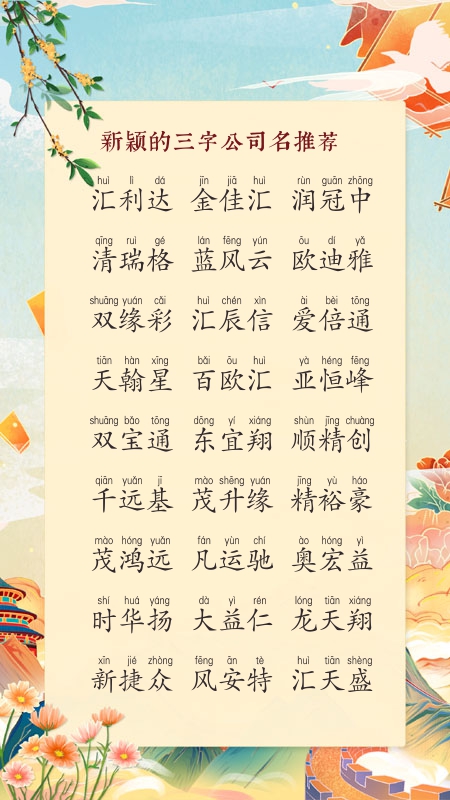 新颖的三字公司名推荐
huì lì dá jīn jiā huì rùn guān zhōng
汇利达 金佳汇 润冠中
qīng ruì gé lán fēng yún ōu dí yǎ
清瑞格 蓝风云 欧迪雅
shuāng yuán cǎi huì chén xìn ài bèi tōng
双缘彩 汇辰信 爱倍通
tiān hàn xīng bǎi ōu huì yà héng fēng
天翰星 百欧汇 亚恒峰
shuāng bǎo tōng dōng yí xiáng shùn jīng chuàng
双宝通 东宜翔 顺精创
qiān yuǎn jī mào shēng yuán jīng yù háo
千远基 茂升缘 精裕豪
mào hóng yuǎn fán yùn chí ào hóng yì
茂鸿远 凡运驰 奥宏益
shí huá yáng dà yì rén lóng tiān xiáng
时华扬 大益仁 龙天翔
xīn jié zhòng fēng ān tè huì tiān shèng
新捷众 风安特 汇天盛